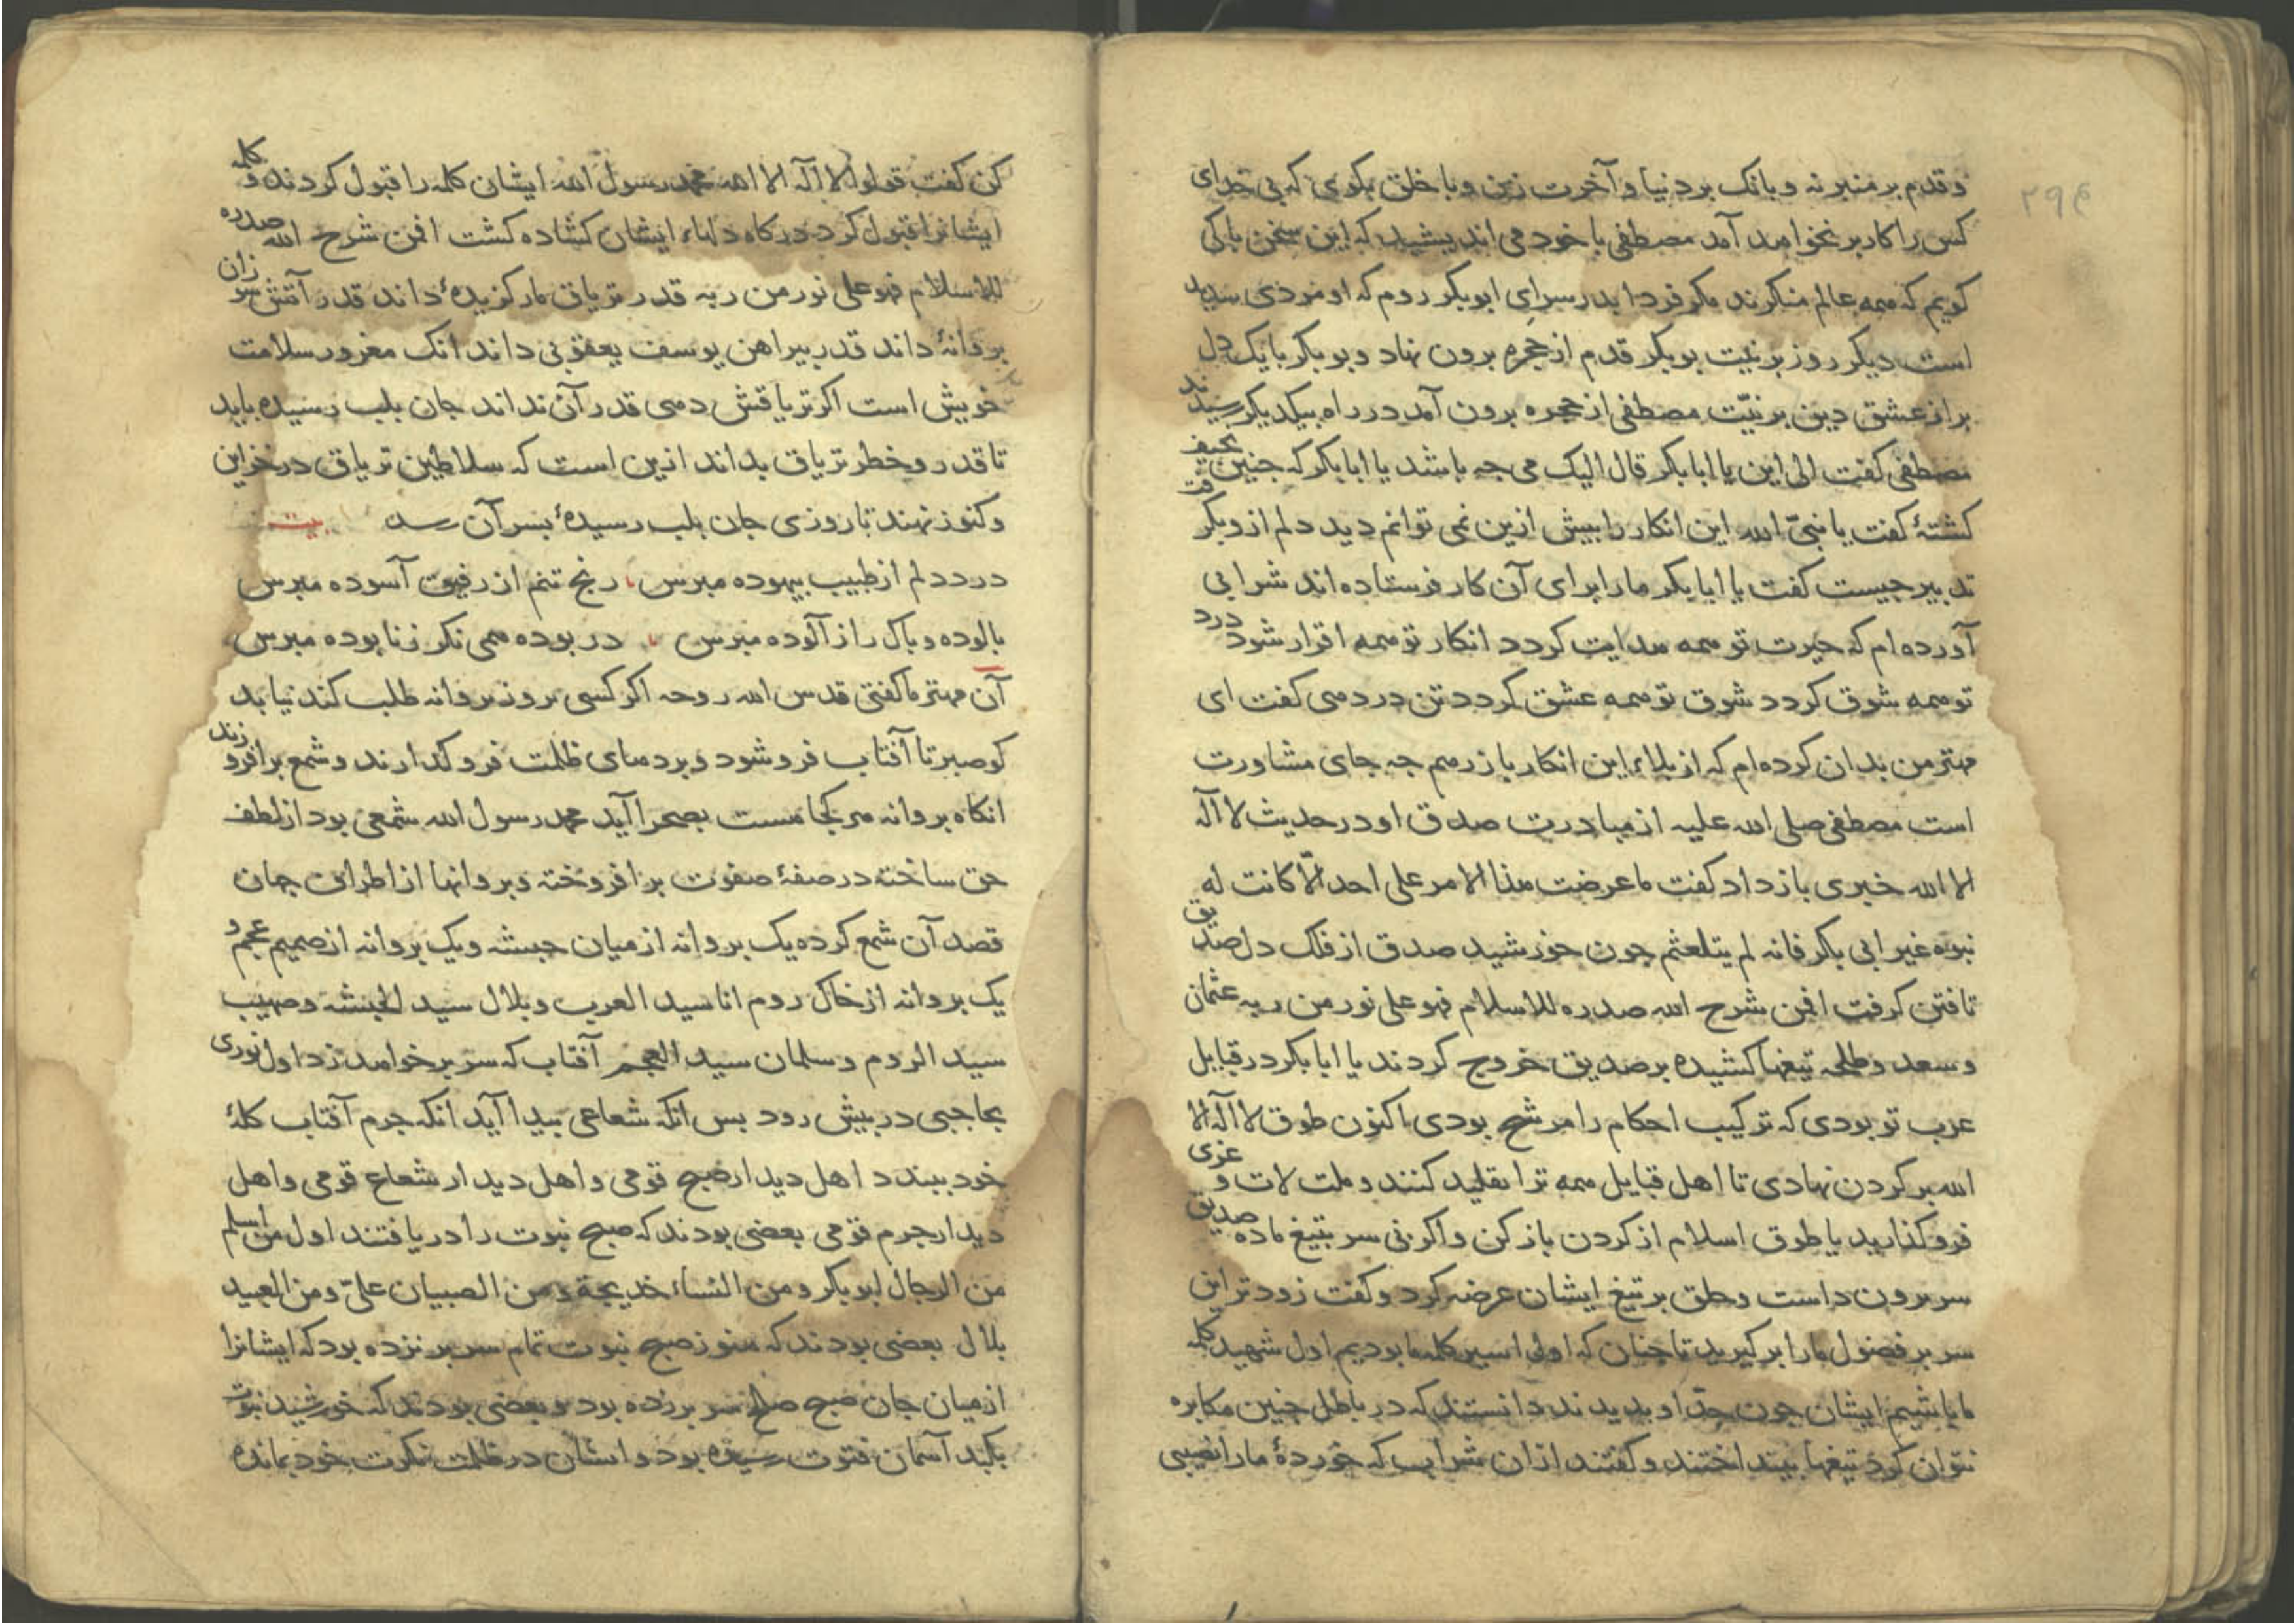 ۲۹۴
و قدم بر منبر نه و بانک بر دنیا و آخرت زن و با خلق بکوی که بی خدای
کس را کار بر نخواهد آمد مصطفی با خود می اندیشید که این سخن با کی
کویم که همه عالم منکرند مکر فردا بدر سرای ابوبکر روم که او مردی سدید
است دیکر روز بر نیت بوبکر قدم از حجره برون نهاد و بوبکر با یک دل
بر از عشق دین بر نیّت مصطفی از حجره برون آمد در راه بیکدیکر رسیدند
مصطفی کفت الی این یا ابا بکر قال الیک می جه باشد یا ابا بکر که جنین نحیف
کشتهٔ کفت یا نبیّ الله این انکار را بیش ازین نمی توانم دید دلم ازو بکرفت
تدبیر جیست کفت یا ابا بکر ما را برای آن کار فرستاده اند شرابی
آورده ام که حیرت تو همه هدایت کردد انکار تو همه اقرار شود درد
تو همه شوق کردد شوق تو همه عشق کردد تن در دهی کفت ای
مهتر من بدان کرده ام که از بلاء این انکار باز رهم جه جای مشاورت
است مصطفی صلی الله علیه از مبادرت صدق او در حدیث لا اله
الا الله خبری باز داد کفت ما عرضت هذا الامر علی احد الّا کانت له
نبوه غیر ابی بکر فانه لم یتلعثم جون خورشید صدق از فلک دل صدیق
تافتن کرفت افمن شرح الله صدره للاسلام فهو علی نور من ربه عثمان
و سعد و طلحه تیغها کشیده بر صدیق خروج کردند یا ابا بکر در قبایل
عرب تو بودی که ترکیب احکام را مرشح بودی اکنون طوق لا اله الا
الله بر کردن نهادی تا اهل قبایل همه ترا تقلید کنند و ملت لات و عزی
فرو کذارید یا طوق اسلام از کردن باز کن و اکر نی سر بتیغ ما ده صدیق
سر برون داست و حلق بر تیغ ایشان عرضه کرد و کفت زودتر این
سر بر فضول ما را بر کیرید تا جنان که اول اسیر کلمه ما بودیم اول شهید کلمه
ما باشیم ایشان جون جدّ او بدیدند دانستند که در باطل جنین مکابره
نتوان کرد تیغها بینداختند و کفتند ازان شراب که خوردهٔ ما را نصیبی
کن کفت قولوا لا اله الا الله محمد رسول الله ایشان کلمه را قبول کردند و کلمه
ایشانرا قبول کرد درکاه دلهاء ایشان کشاده کشت افمن شرح الله صدره
للاسلام فهو علی نور من ربه قدر تریاق مار کزیدهٔ داند قدر آتش سوزان
بروانهٔ داند قدر بیراهن یوسف یعقوبی داند انک مغرور سلامت
خویش است اکر تریاقش دهی قدر آن نداند جان بلب رسیده باید
تا قدر و خطر تریاق بداند ازین است که سلاطین تریاق در خزاین
و کنوز نهند تا روزی جان بلب رسیدهٔ بسر آن رسد بیت
درد دلم از طبیب بیهوده مبرس رنج تنم از رفیق آسوده مبرس
بالوده و باک را ز آلوده مبرس در بوده همی نکر ز نابوده مبرس
آن مهتر ما کفتی قدس الله روحه اکر کسی بروز بروانه طلب کند نیابد
کو صبر تا آفتاب فرو شود و بردهای ظلمت فرو کذارند و شمع برافروزند
انکاه بروانه هر کجا هست بصحرا آید محمد رسول الله شمعی بود از لطف
حق ساخته در صفهٔ صفوت برافروخته و بروانها از اطراف جهان
قصد آن شمع کرده یک بروانه از میان حبشه و یک بروانه از صمیم عجم و
یک بروانه از خاک روم انا سید العرب و بلال سید الحبشه و صهیب
سید الروم و سلمان سید العجم آفتاب که سر بر خواهد زد اول نوری
بحاجبی در بیش رود بس انکه شعاعی بیدا آید انکه جرم آفتاب کلهٔ
خود ببندد اهل دیدار صبح قومی و اهل دیدار شعاع قومی و اهل
دیدار جرم قومی بعضی بودند که صبح نبوت را دریافتند اول من اسلم
من الرجال ابوبکر و من النساء خدیجة و من الصبیان علیّ و من العبید
بلال بعضی بودند که هنوز صبح نبوت تمام سر بر نزده بود که ایشانرا
از میان جان صبح صلح سر بر زده بود و بعضی بودند که خورشید نبوت
بکبد آسمان فتوت رسیده بود و ایشان در ظلمت نکرت خود بمانده